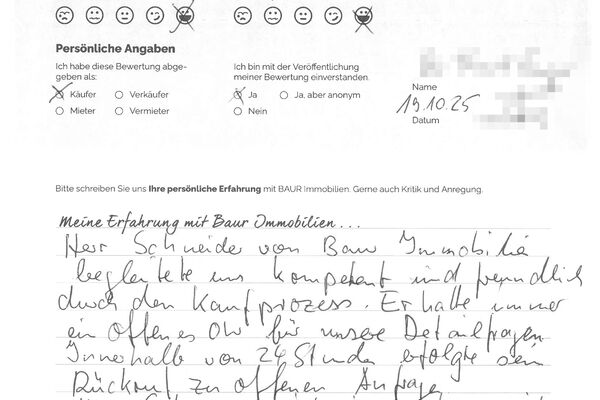 Persönliche Angaben
Ich habe diese Bewertung abge-
geben als:
Käufer Verkäufer
Mieter Vermieter
Ich bin mit der Veröffentlichung
meiner Bewertung einverstanden.
Ja Ja, aber anonym
Nein
Name
19.10.25
Datum
Bitte schreiben Sie uns Ihre persönliche Erfahrung mit BAUR Immobilien. Gerne auch Kritik und Anregung.
Meine Erfahrung mit Baur Immobilien...
Herr Schneider von Baur Immobilie
begleitete uns kompetent und freundlich
durch den Kaufprozess. Er hatte immer
ein offenes Ohr für unsere Detailfragen
Innerhalb von 24 Stunde erfolgte sein
Rückruf zu offenen Anfragen